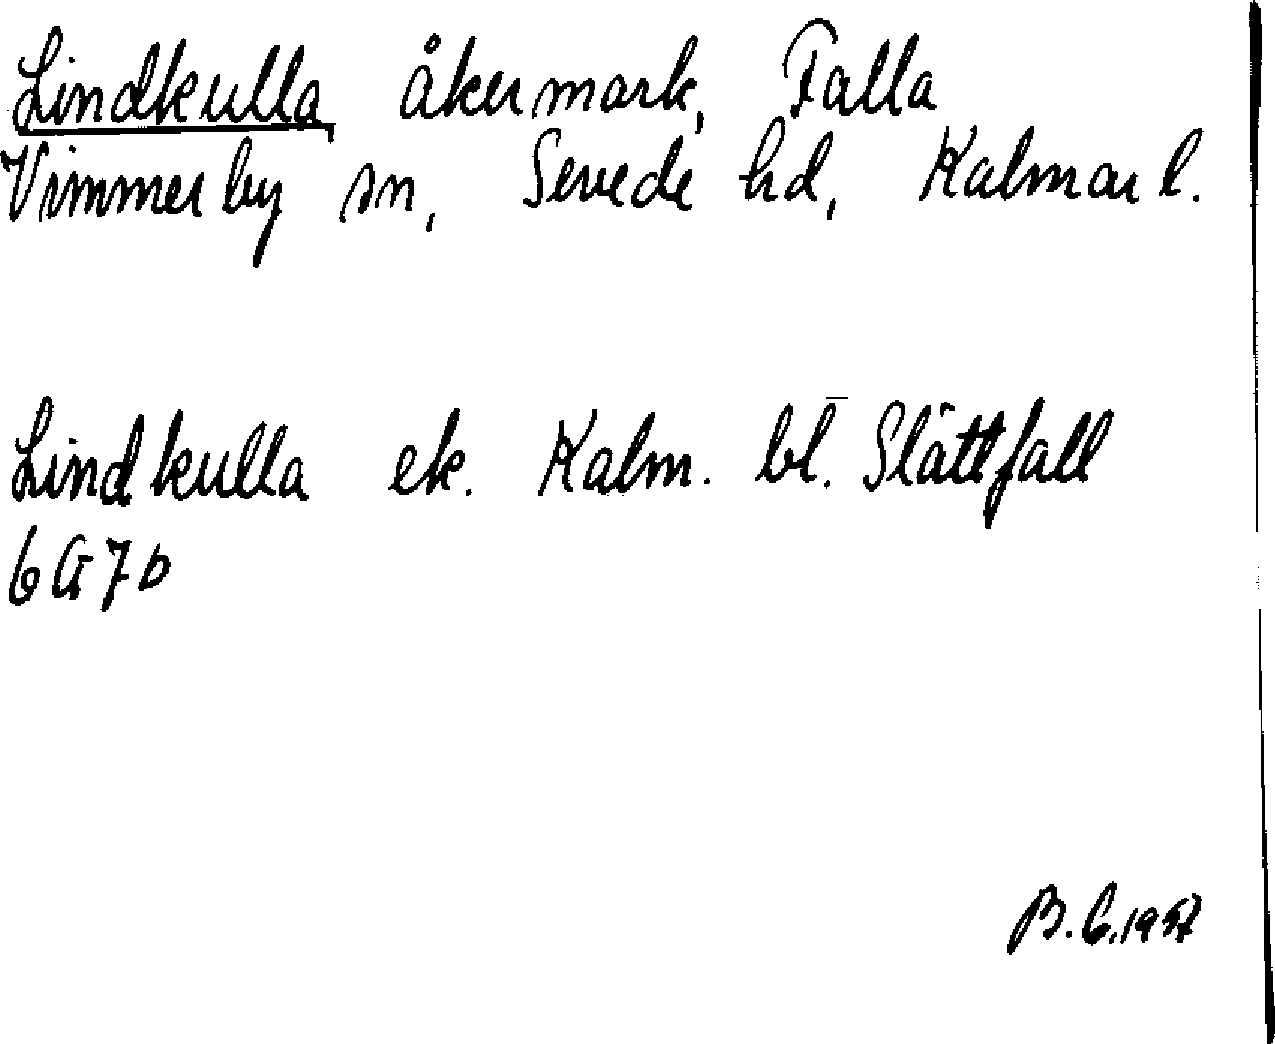 Lindkulla, åkermark, Falla
Vimmerby sn, Sevede hd, Kalmar l.
Lindkulla ek. Kalm. bl. Slättfall
6G7b
B.C. 1957